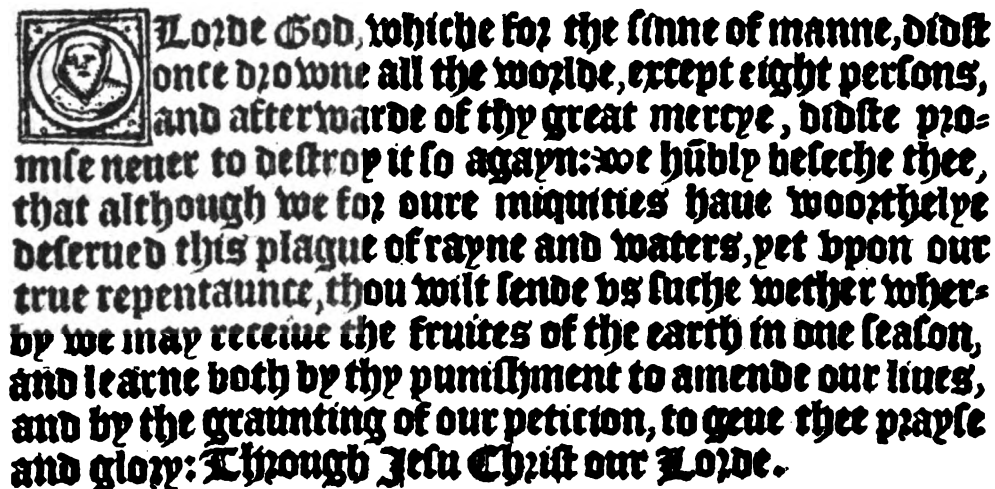 O Lorde God, whiche for the sinne of manne, didst
once drowne all the worlde, except eight persons,
and afterwarde of thy great mercye, didste pro=
mise neuer to destroy it so agayn: we hūbly beseche thee,
that although we for oure iniquities haue woorthelye
deserued this plague of rayne and waters, yet vpon our
true repentaunce, thou wilt sende vs suche wether wher=
by we may receiue the fruites of the earth in one season,
and learne both by thy punishment to amende our liues,
and by the graunting of our peticion, to geue thee prayse
and glory: Through Jesu Christ our Lorde.